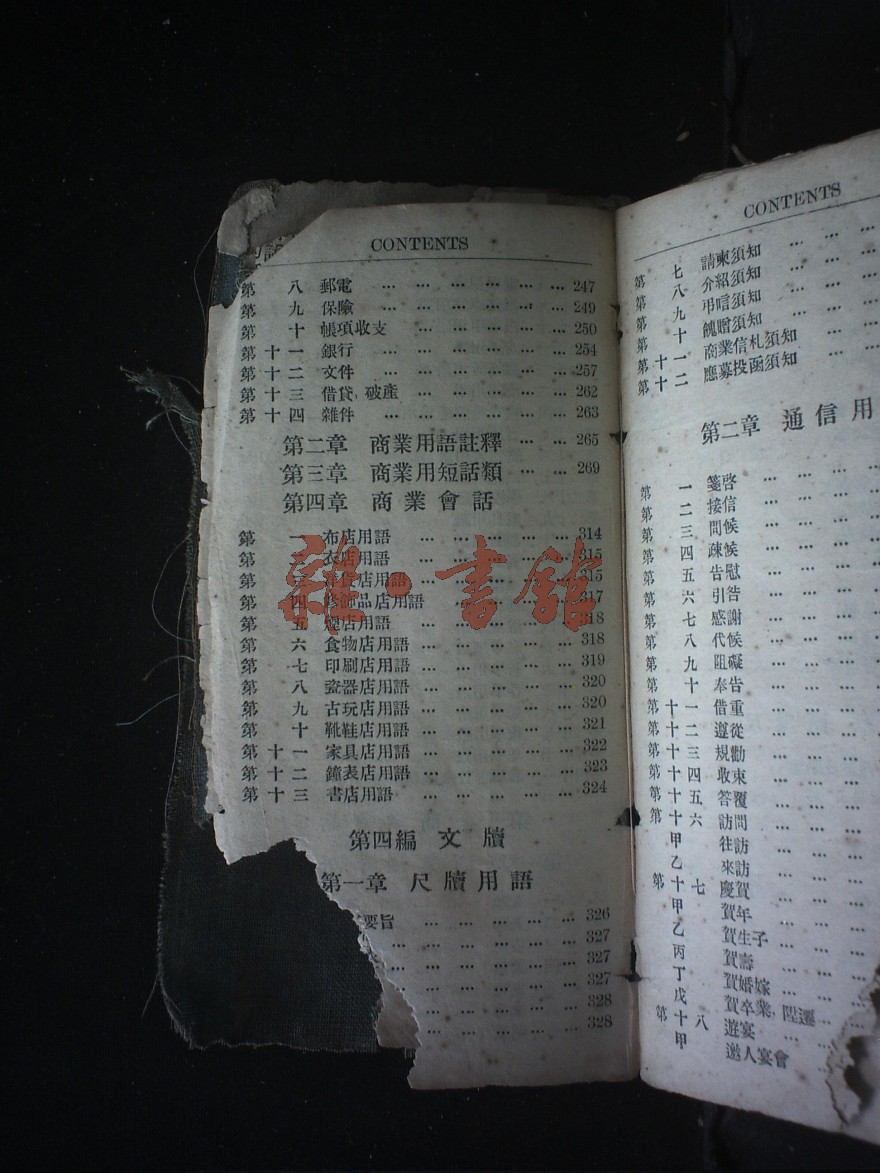 CONTENTS
第 八 郵電 … … … … … … 247
第 九 保險 … … … … … … 249
第 十 帳項收支 … … … … … 250
第十一 銀行 … … … … … … 254
第十二 文件 … … … … … … 257
第十三 借貸, 破產 … … … … … 262
第十四 雜件 … … … … … … 263
第二章 商業用語註釋 … … 265
第三章 商業用短話類 … … 269
第四章 商業會話
第 一 布店用語 … … … … … 314
第 衣店用語 … … … … … 315
第 店用語 … … … … 315
第 四 修飾品店用語 … … … … 317
第 五 煙店用語 … … … … … 318
第 六 食物店用語 … … … … … 318
第 七 印刷店用語 … … … … … 319
第 八 瓷器店用語 … … … … … 320
第 九 古玩店用語 … … … … … 320
第 十 靴鞋店用語 … … … … … 321
第十一 家具店用語 … … … … … 322
第十二 鐘表店用語 … … … … … 323
第十三 書店用語 … … … … … 324
第四編 文牘
第一章 尺牘用語
要旨 … … … … … 326
… … … … … 327
… … … … … 327
… … … … 327
… … … … 328
… … … … 328
雜·書館
CONTENTS
第 七 請柬須知 … … …
第 八 介紹須知 … … …
第 九 弔唁須知 … … …
第 十 餽贈須知 … … …
第十一 商業信札須知 … …
第十二 應募投函須知 … …
第二章 通信用
第 一 箋啓 … … …
第 二 接信 … … …
第 三 問候 … … …
第 四 疎候 … … …
第 五 告慰 … … …
第 六 引咎 … … …
第 七 感謝 … … …
第 八 代候 … … …
第 九 阻礙 … … …
第 十 奉告 … … …
第十一 借重 … … …
第十二 遵從 … … …
第十三 規勸 … … …
第十四 收束 … … …
第十五 答覆 … … …
第十六 訪問 … … …
甲 往訪 … … …
乙 來訪 … … …
第十七 慶賀 … … …
甲 賀年 … … …
乙 賀生子 … … …
丙 賀壽 … … …
丁 賀婚嫁 … …
戊 賀卒業, 陞遷 …
第十八 遊宴 … …
甲 邀人宴會 …